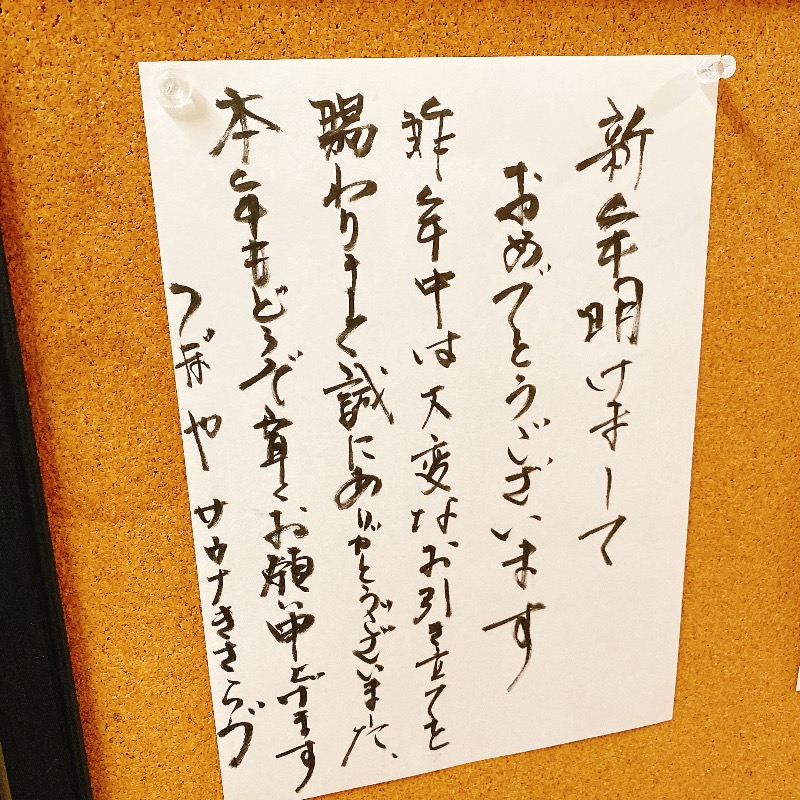 新年明けまして
おめでとうございます
昨年中は大変なお引き立てを
賜わりまして誠にありがとうございました、
本年もどうぞ宜しくお願い申上げます
つぼや サウナきさらづ